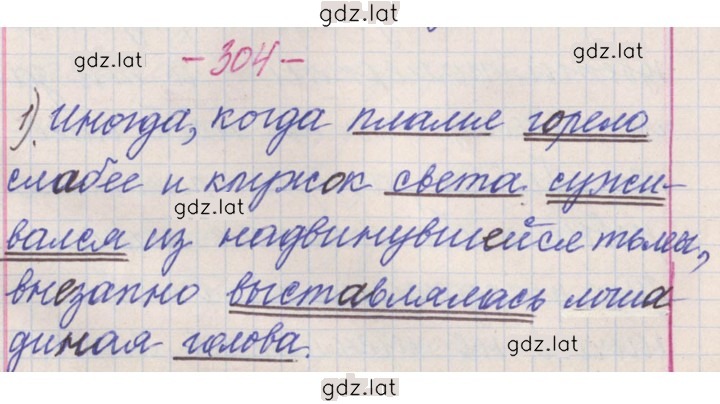 gdz.lat
gdz.lat - 304 - gdz.lat
1). Иногда, когда пламе горело
слабее и клужок света сужи-
gdz.lat
вался из надвинувшейся тьмы,
внезапно выставлялась лоша
диная голова. gdz.lat
gdz.lat